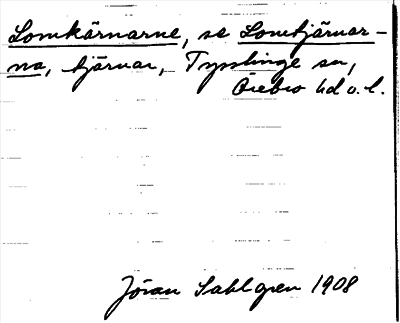 Lomkärnarne, se Lomtjärnar-
na, tjärnar, Tysslinge sn,
Örebro hd o. l.
Jöran Sahlgren 1908